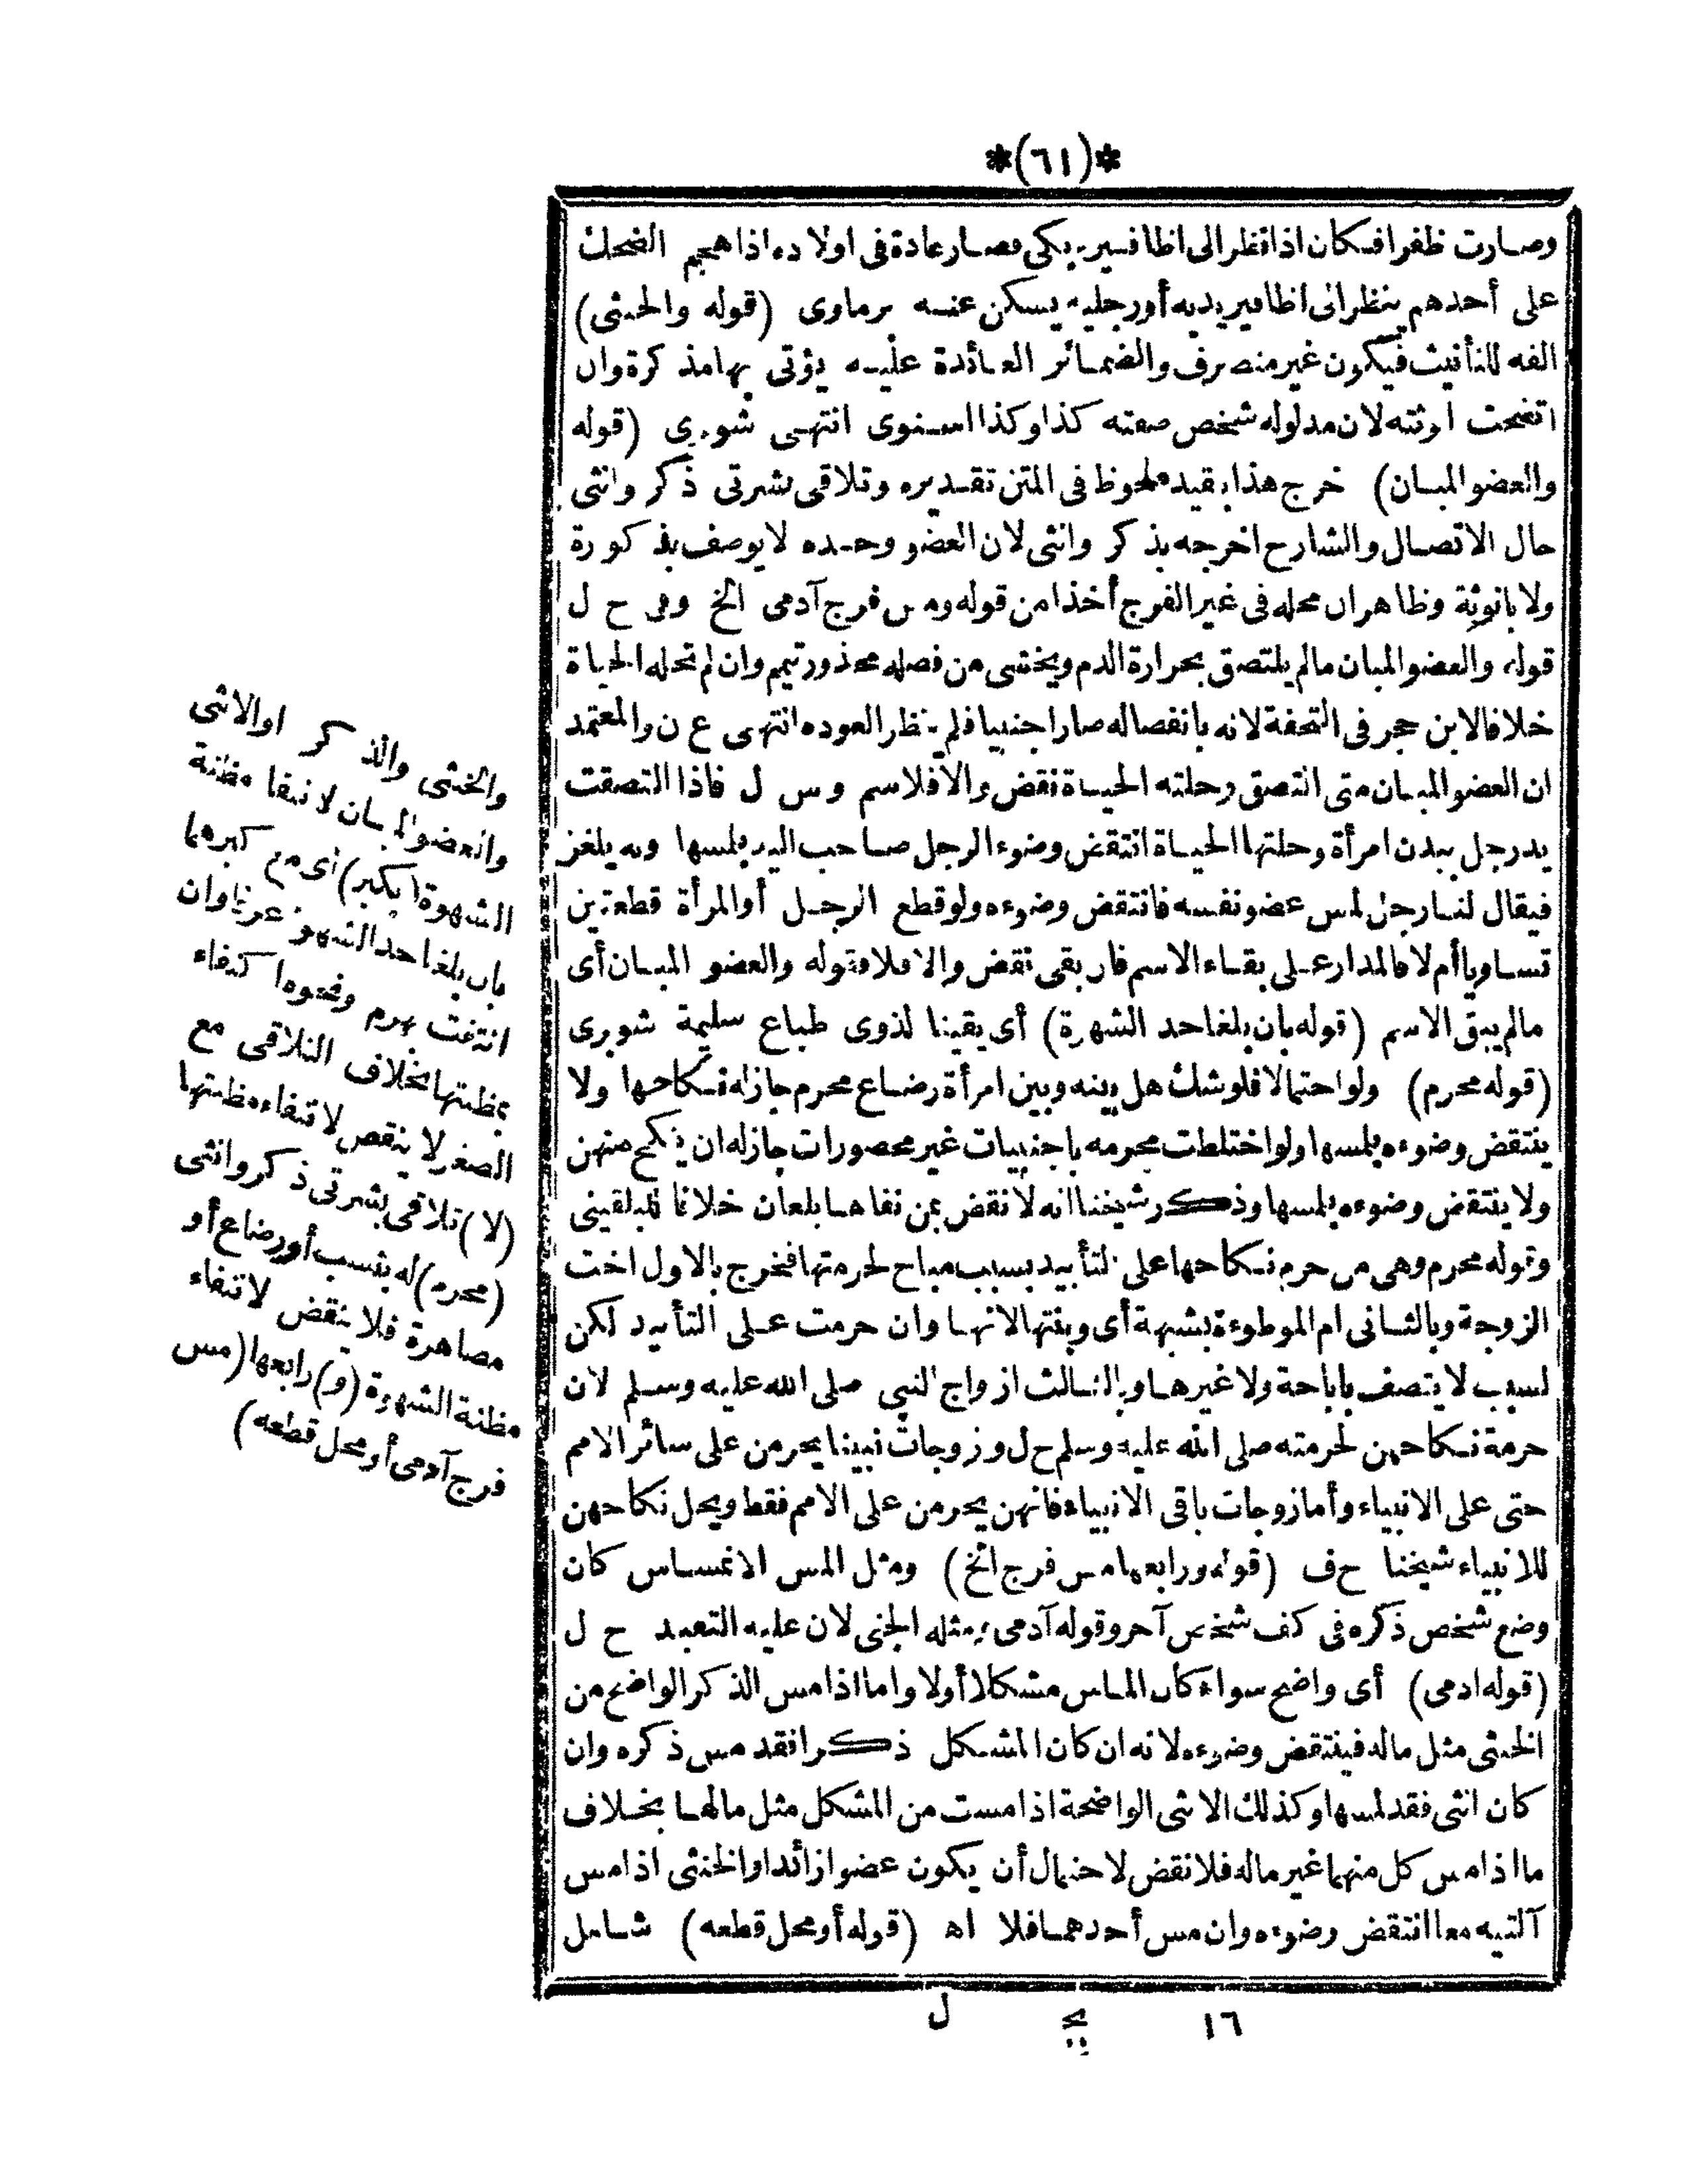 *(٦١)*
وصارت ظفرا فكان اذا نظر الى اظافيره يبكى فصار عادة فى اولاده اذا هجم الضحك
على أحدهم ينظر الى اظافير يديه أو رجليه يسكن عنه برماوى (قوله والخنثى)
الفه للتأنيث فيكون غير منصرف والضمائر العائدة عليه يؤتى بها مذكرة وان
اتضحت انوثته لان مدلوله شخص صفته كذا وكذا اسنوى انتهى شوبرى (قوله
والعضو المبان) خرج هذا بقيد ملحوظ فى المتن تقديره وتلاقى بشرتى ذكر وانثى
حال الاتصال والشارح اخرجه بذكر وانثى لان العضو وحده لا يوصف بذكورة
ولا بانوثة وظاهر ان محله فى غير الفرج أخذا من قوله ومس فرج آدمى الخ وفى ح ل
قوله والعضو المبان مالم يلتصق بحرارة الدم ويخشى من فصله محذور تيمم وان لم تحله الحياة
خلافا لابن حجر فى التحفة لانه بانفصاله صار اجنبيا فلم ينظر العوده انتهى ع ن والمعتمد
ان العضو المبان متى التصق وحلته الحياة نقض والا فلا سم وس ل فاذا التصقت
يد رجل ببدن امرأة وحلتها الحياة انتقض وضوء الرجل صاحب اليد بلمسها وبه يلغز
فيقال لنا رجل لمس عضو نفسه فانتقض وضوءه ولو قطع الرجل أو المرأة قطعتين
تساويا أم لا فالمدار على بقاء الاسم فان بقى نقض والا فلا فقوله والعضو المبان أى
مالم يبق الاسم (قوله بان بلغا حد الشهوة) أى يقينا لذوى طباع سليمة شوبرى
(قوله محرم) ولو احتمالا فلو شك هل بينه وبين امرأة رضاع محرم جاز له نكاحها ولا
ينتقض وضوءه بلمسها ولو اختلطت محرمه باجنبيات غير محصورات جاز له ان ينكح منهن
ولا ينتقض وضوءه بلمسها وذكر شيخنا انه لا نقض بمن نفاها بلعان خلافا للبلقينى
وقوله محرم وهى من حرم نكاحها على التأبيد بسبب مباح لحرمتها فخرج بالاول اخت
الزوجة وبالثانى ام الموطوءة بشبهة أى وبنتها لانها وان حرمت على التأبيد لكن
لسبب لا يتصف باباحة ولا غيرها وبالثالث ازواج النبى صلى الله عليه وسلم لان
حرمة نكاحهن لحرمته صلى الله عليه وسلم ح ل وزوجات نبينا يحرمن على سائر الامم
حتى على الانبياء وأما زوجات باقى الانبياء فانهن يحرمن على الامم فقط ويحل نكاحهن
للانبياء شيخنا ح ف (قوله ورابعها مس فرج الخ) ومثل المس الانمساس كان
وضع شخص ذكره فى كف شخص آخر وقوله آدمى ومثله الجنى لان عليه التعبد ح ل
(قوله ادمى) أى واضح سواء كان الماس مشكلا أولا واما اذا مس الذكر الواضح من
الخنثى مثل ماله فينتقض وضوءه لانه ان كان المشكل ذكرا فقد مس ذكره وان
كان انثى فقد لمسها وكذلك الانثى الواضحة اذا مست من المشكل مثل مالها بخلاف
ما اذا مس كل منهما غير ماله فلا نقض لاحتمال أن يكون عضوا زائدا والخنثى اذا مس
آلتيه معا انتقض وضوءه وان مس أحدهما فلا اه (قوله أو محل قطعه) شامل
والخنثى والذكر او الانثى
والعضو المبان لانتفا مظنة
الشهوة (بكبر) أى مع كبرهما
بان بلغا حد الشهوة عرفا وان
انتفت بهرم ونحوه اكتفاء
بمظنتها بخلاف التلاقى مع
الصغر لا ينقض لانتفاء مظنتها
(لا) تلاقى بشرتى ذكر وانثى
(محرم) له بنسب أو رضاع أو
مصاهرة فلا ينقض لانتفاء
مظنة الشهوة (و) رابعها (مس
فرج آدمى أو محل قطعه)
١٦ بج ل